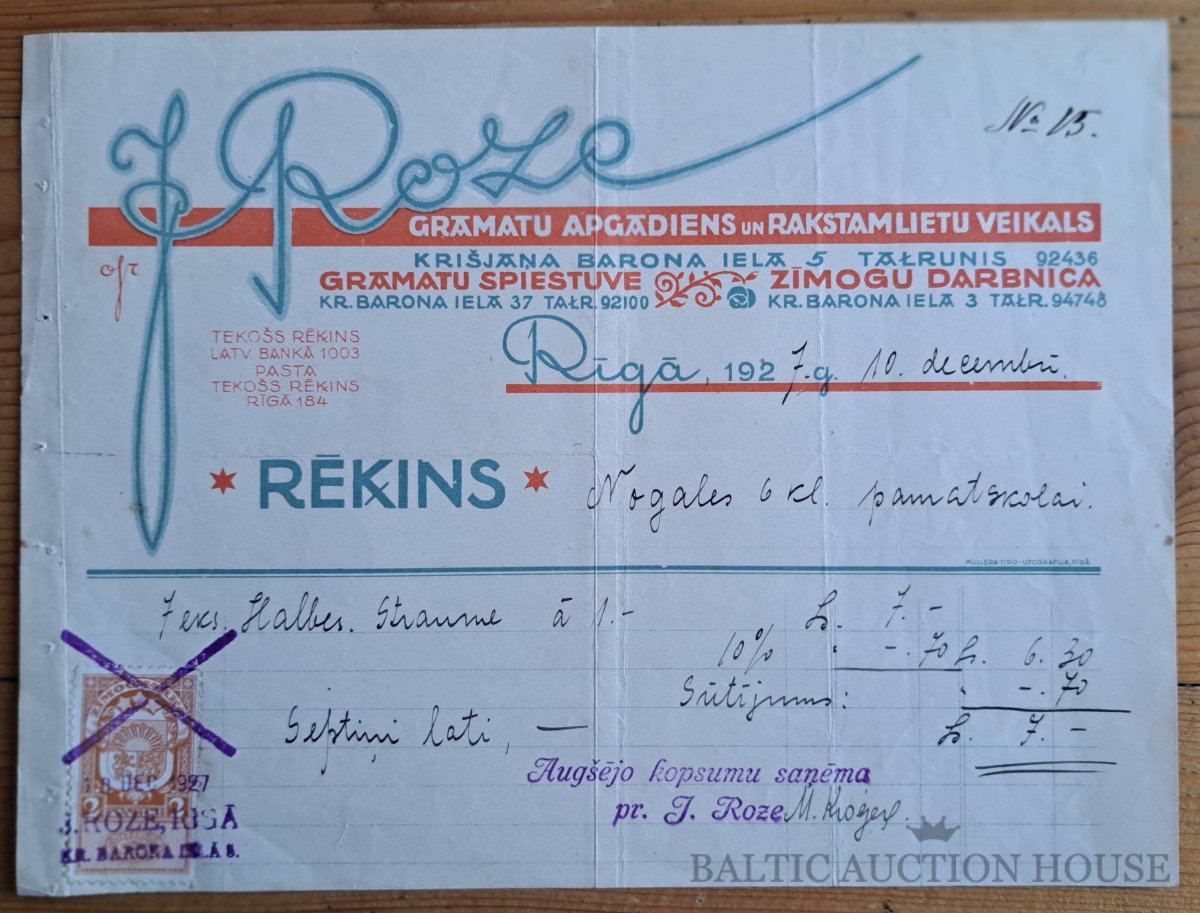 J Roze
№ 15.
GRAMATU APGĀDIENS UN RAKSTAMLIETU VEIKALS
KRIŠJAŅA BARONA IELĀ 5 TAĻRUNIS 92436
GRAMATU SPIESTUVE ZĪMOGU DARBNICA
KR. BARONA IELĀ 37 TAĻR. 92100 KR. BARONA IELĀ 3 TAĻR. 94748
TEKOŠS RĒĶINS
LATV. BANKĀ 1003
PASTA
TEKOŠS RĒĶINS
RĪGĀ 184
Rīgā, 1927.g. 10. decembrī.
RĒĶINS Nogales 6 kl. pamatskolai.
7 eks. Halbes. Straume à 1.- Ls. 7.-
10% " -.70 Ls. 6.30
Sūtījums: " -.70
Septiņi lati, — Ls. 7.-
Augšējo kopsumu saņēma
pr. J. Roze
DEC 1927
2
J. ROZE, RĪGĀ
KR. BARONA IELĀ 5.
BALTIC AUCTION HOUSE